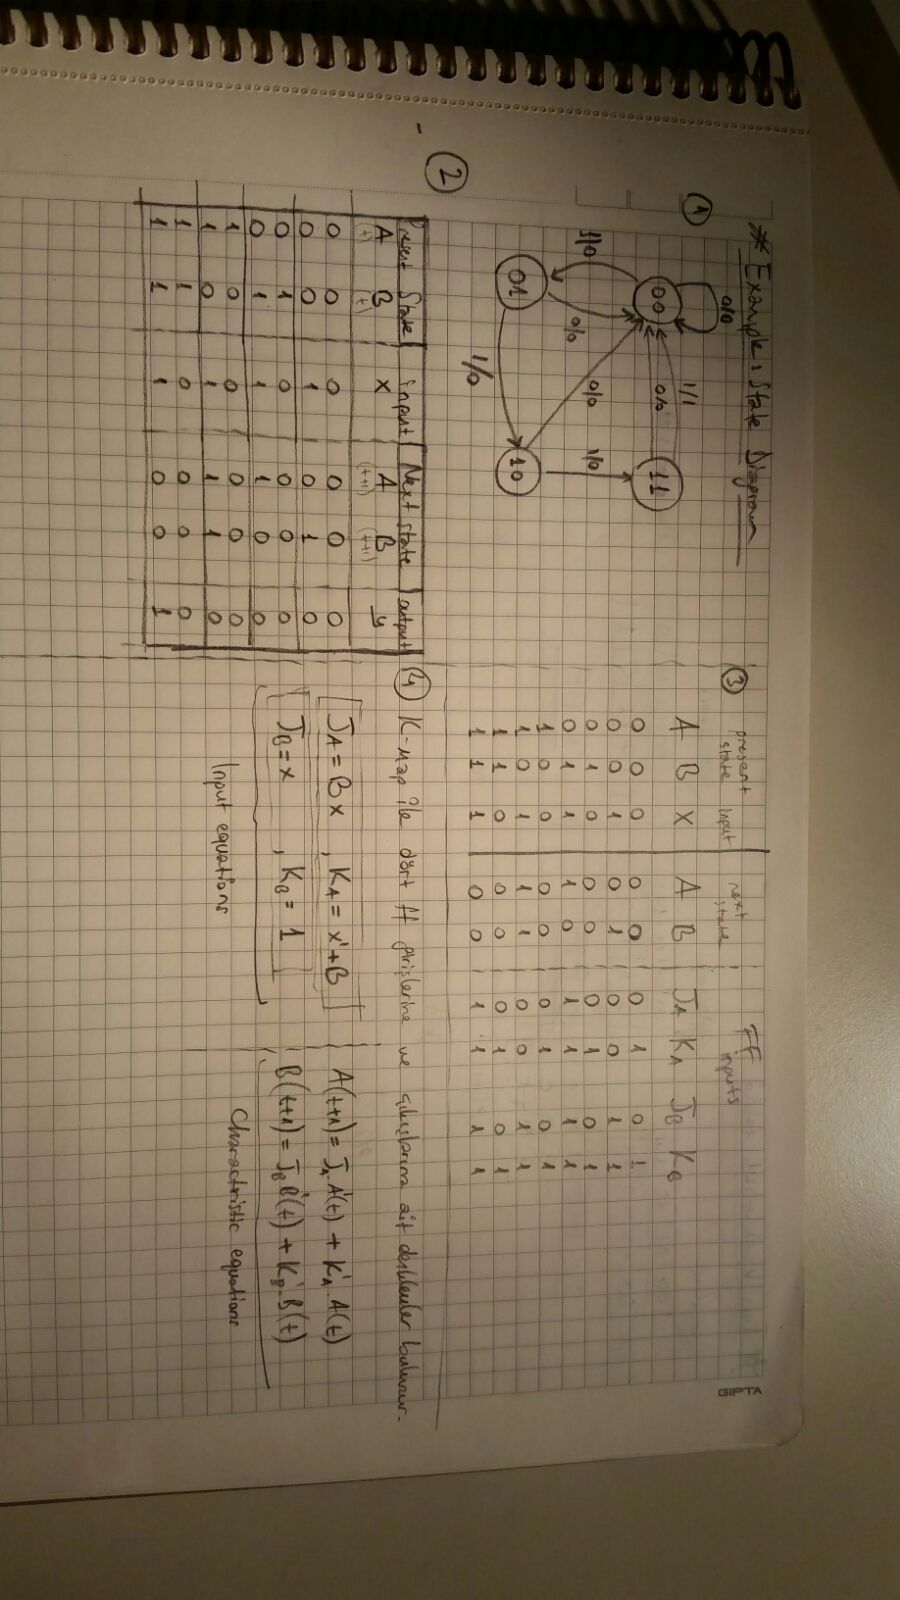 # Example: State Diagram
1
0/0
1/1
00
0/0
11
1/0
0/0
0/0
1/0
01
10
1/0
2
Present State input Next state output
A B x A B y
(t) (t) (t+1) (t+1)
0 0 0 0 0 0
0 0 1 0 1 0
0 1 0 0 0 0
0 1 1 1 0 0
1 0 0 0 0 0
1 0 1 1 1 0
1 1 0 0 0 0
1 1 1 0 0 1
3
present state input next state FF inputs
A B X A B JA KA JB KB
0 0 0 0 0 0 1 0 1
0 0 1 0 1 0 0 1 1
0 1 0 0 0 0 1 0 1
0 1 1 1 0 1 1 1 1
1 0 0 0 0 0 1 0 1
1 0 1 1 1 0 0 1 1
1 1 0 0 0 0 1 0 1
1 1 1 0 0 1 1 1 1
4 K-map ile dört ff girişlerine ve çıkışlarına ait denklemler bulunur.
JA = Bx , KA = x'+B
JB = x , KB = 1
Input equations
A(t+1) = JA A'(t) + KA'.A(t)
B(t+1) = JB B'(t) + KB'.B(t)
Charactristic equations
GIPTA